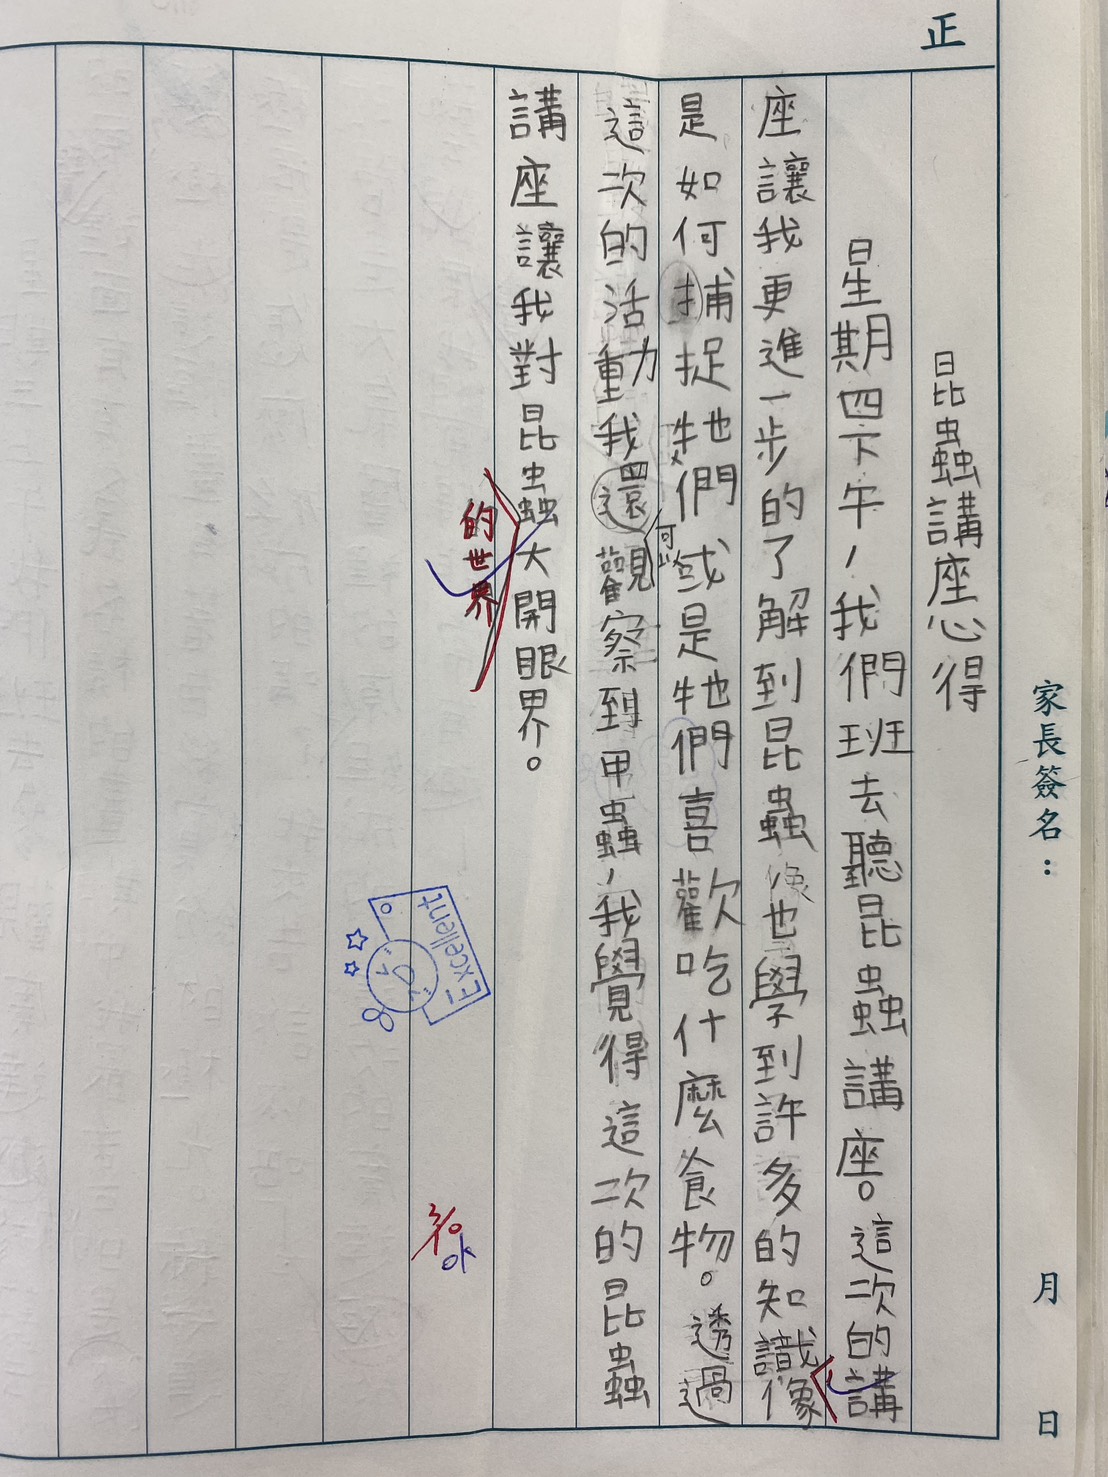 正
家長簽名：
月
日
昆蟲講座心得
星期四下午，我們班去聽昆蟲講座。這次的講
座讓我更進一步的了解到昆蟲，也學到許多的知識像
是如何捕捉牠們或是牠們喜歡吃什麼食物。透過
這次的活動我還觀察到甲蟲，我覺得這次的昆蟲
講座讓我對昆蟲大開眼界。
的世界
Excellent
3/0
ok